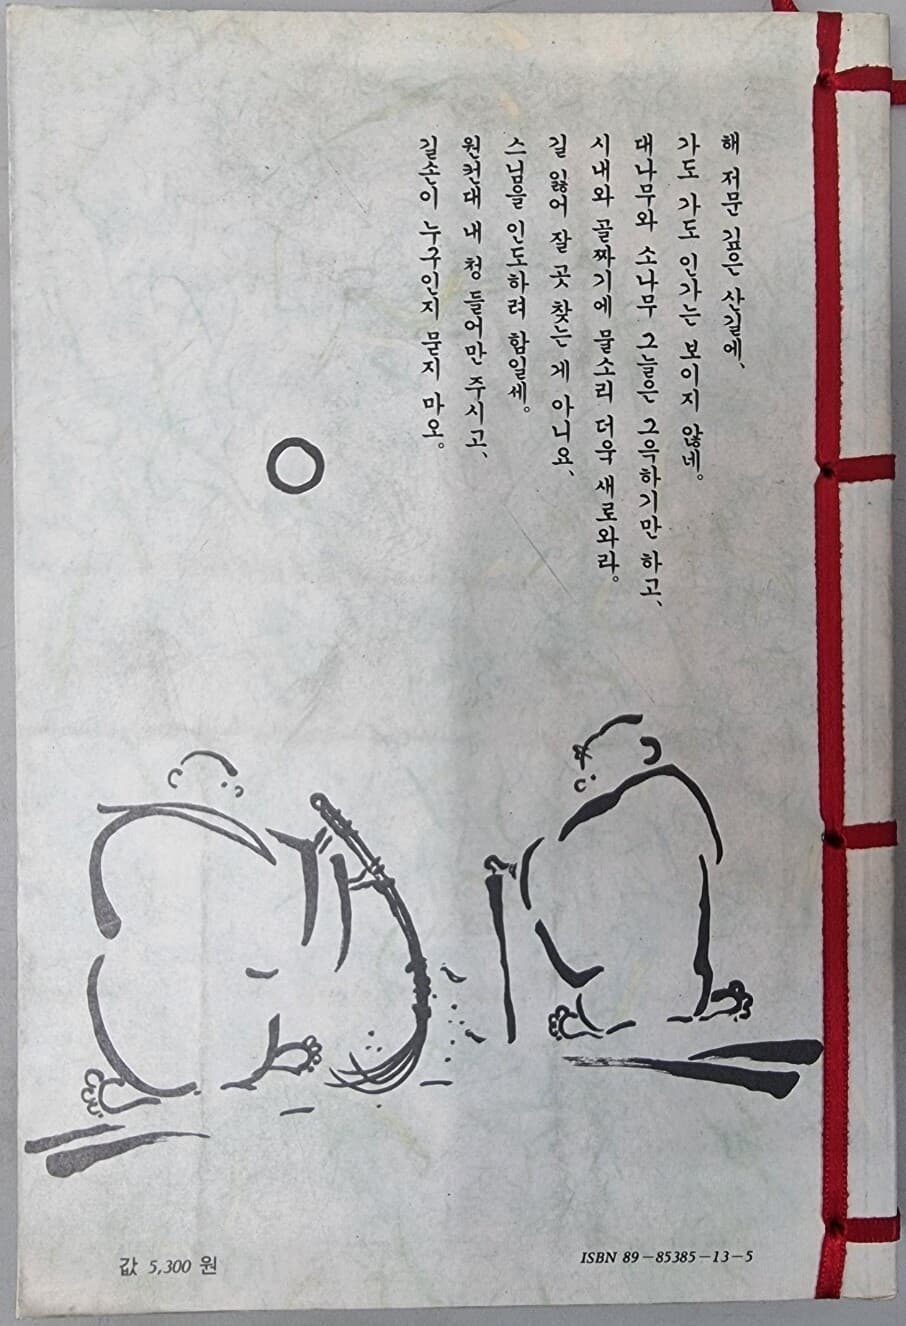 해 저문 깊은 산길에、
가도 가도 인가는 보이지 않네。
대나무와 소나무 그늘은 그윽하기만 하고、
시내와 골짜기에 물소리 더욱 새로와라。
길 잃어 잘 곳 찾는 게 아니요、
스님을 인도하려 함일세。
원컨대 내 청 들어만 주시고、
길손이 누구인지 묻지 마오。
값 5,300 원
ISBN 89－85385－13－5